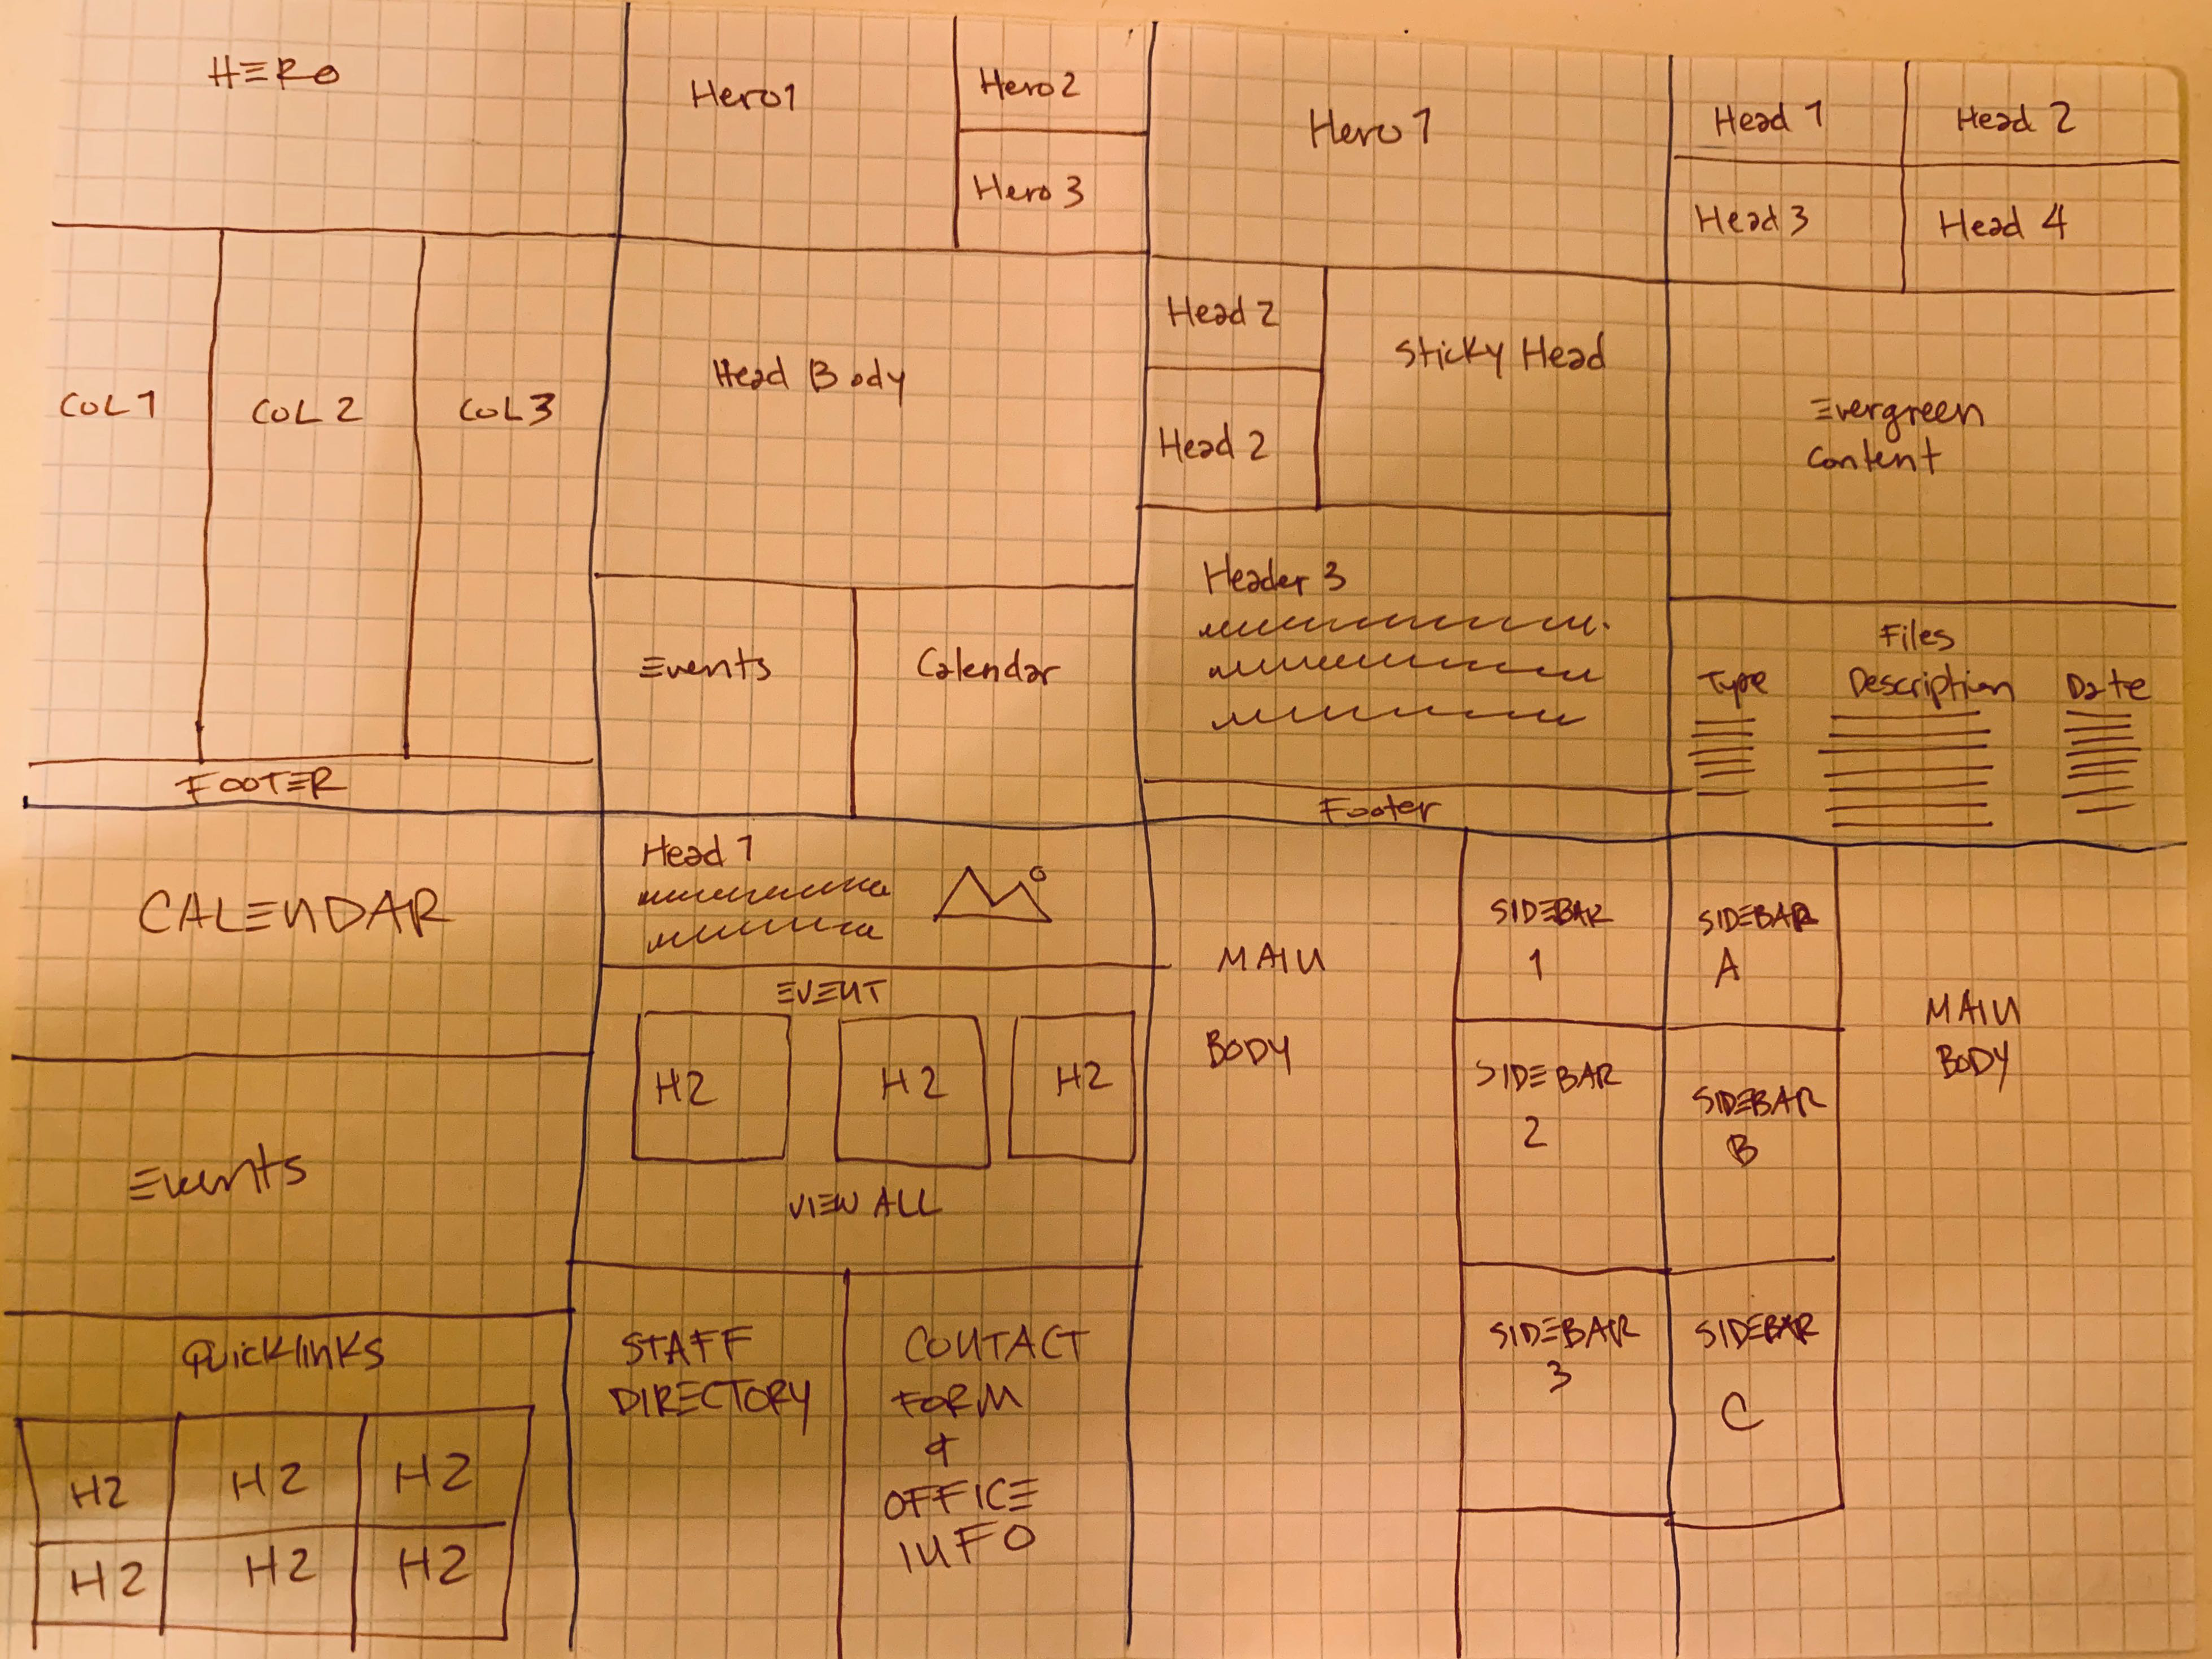 HERO
COL 1
COL 2
COL 3
FOOTER
Hero 1
Hero 2
Hero 3
Head Body
Events
Calendar
Hero 1
Head 2
Head 2
Sticky Head
Header 3
Footer
Head 1
Head 2
Head 3
Head 4
Evergreen
Content
Files
Type
Description
Date
CALENDAR
Events
Quicklinks
H2
H2
H2
H2
H2
H2
Head 1
EVENT
H2
H2
H2
VIEW ALL
STAFF
DIRECTORY
CONTACT
FORM
&
OFFICE
INFO
MAIN
BODY
SIDEBAR
1
SIDEBAR
2
SIDEBAR
3
SIDEBAR
A
SIDEBAR
B
SIDEBAR
C
MAIN
BODY